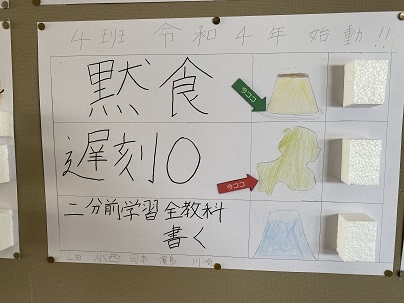 4班 令和4年 始動!!
黙食
今ココ
遅刻0
今ココ
二分前学習全教科
書く
小西